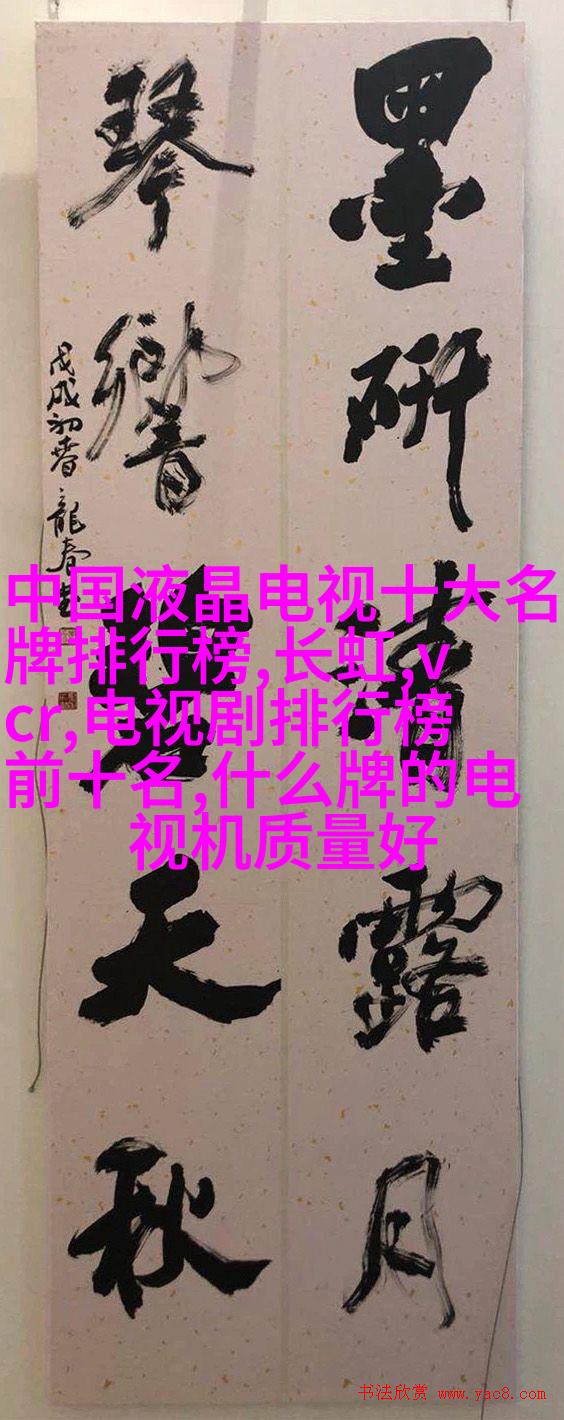 墨研清露月
琴響碧天秋
戊戌初春龍春
中国液晶电视十大名
牌排行榜,长虹,v
cr,电视剧排行榜
前十名,什么牌的电
视机质量好
书法欣赏 www.yac8.com